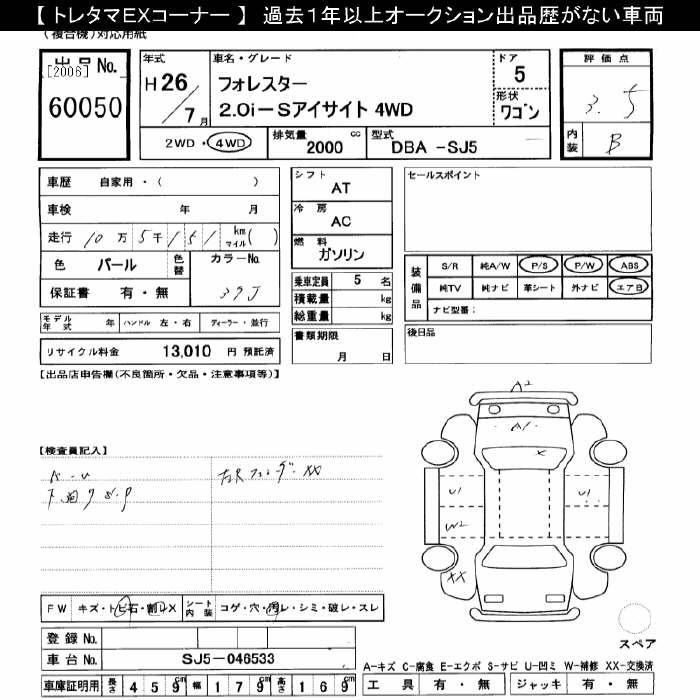 【 トレタマEXコーナー 】 過去1年以上オークション出品歴がない車両
(複合機)対応用紙
出品No.
[2006]
60050
年式
H 26
/ 7 月
車名・グレード
フォレスター
2.0i-Sアイサイト 4WD
ドア
5
形状
ワゴン
評価点
3.5
内装
B
2WD・4WD
排気量
2000
cc
型式
DBA -SJ5
車歴 自家用・( )
車検 年 月
走行 10 万 5 千 151 km マイル ( )
色 パール 色替 カラーNo.
保証書 有・無 37J
モデル年式 年 ハンドル 左・右 ディーラー・並行
リサイクル料金 13,010 円 預託済
シフト
AT
冷房
AC
燃料
ガソリン
乗車定員 5 名
積載量 kg
総重量 kg
書類期限
月 日
セールスポイント
装備品
S/R 純A/W P/S P/W ABS
純TV 純ナビ 革シート 外ナビ エアB
ナビ型番:
後日品
【出品店申告欄(不良箇所・欠品・注意事項等)】
【検査員記入】
A・U
XX
A2
A1
X
U1
U1
W2
XX
FW キズ・トビ石・割レX
シート内装 コゲ・穴・汚レ・シミ・破レ・スレ
登録No.
車台No. SJ5-046533
車庫証明用 長さ 459cm 幅 179cm 高さ 169cm
スペア
A-キズ C-腐食 E-エクボ S-サビ U-凹ミ W-補修 XX-交換済
工具 有・無 ジャッキ 有・無